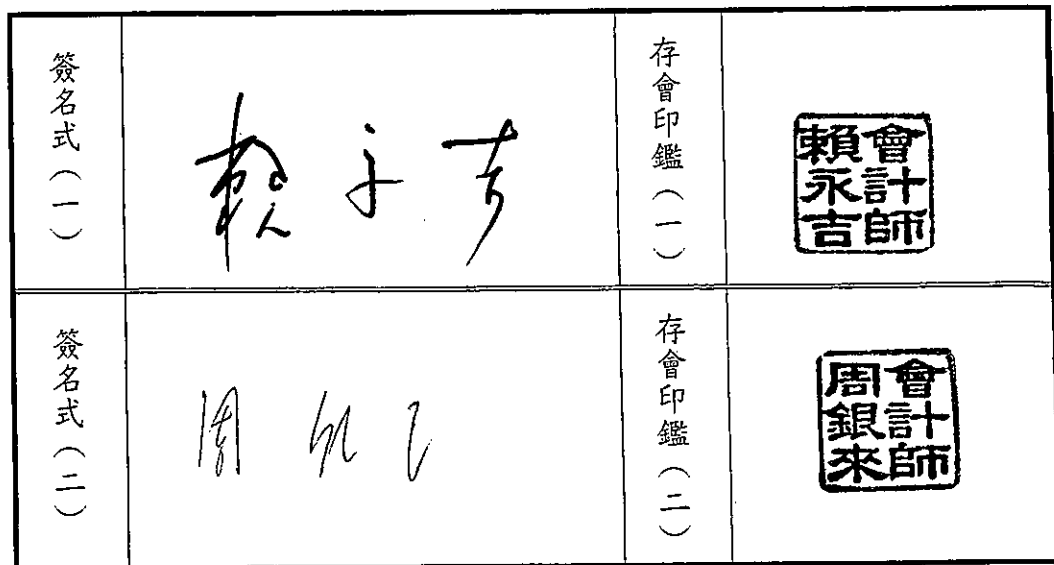 簽名式（一）
賴永吉
存會印鑑（一）
會計師
賴永吉
簽名式（二）
周銀來
存會印鑑（二）
會計師
周銀來